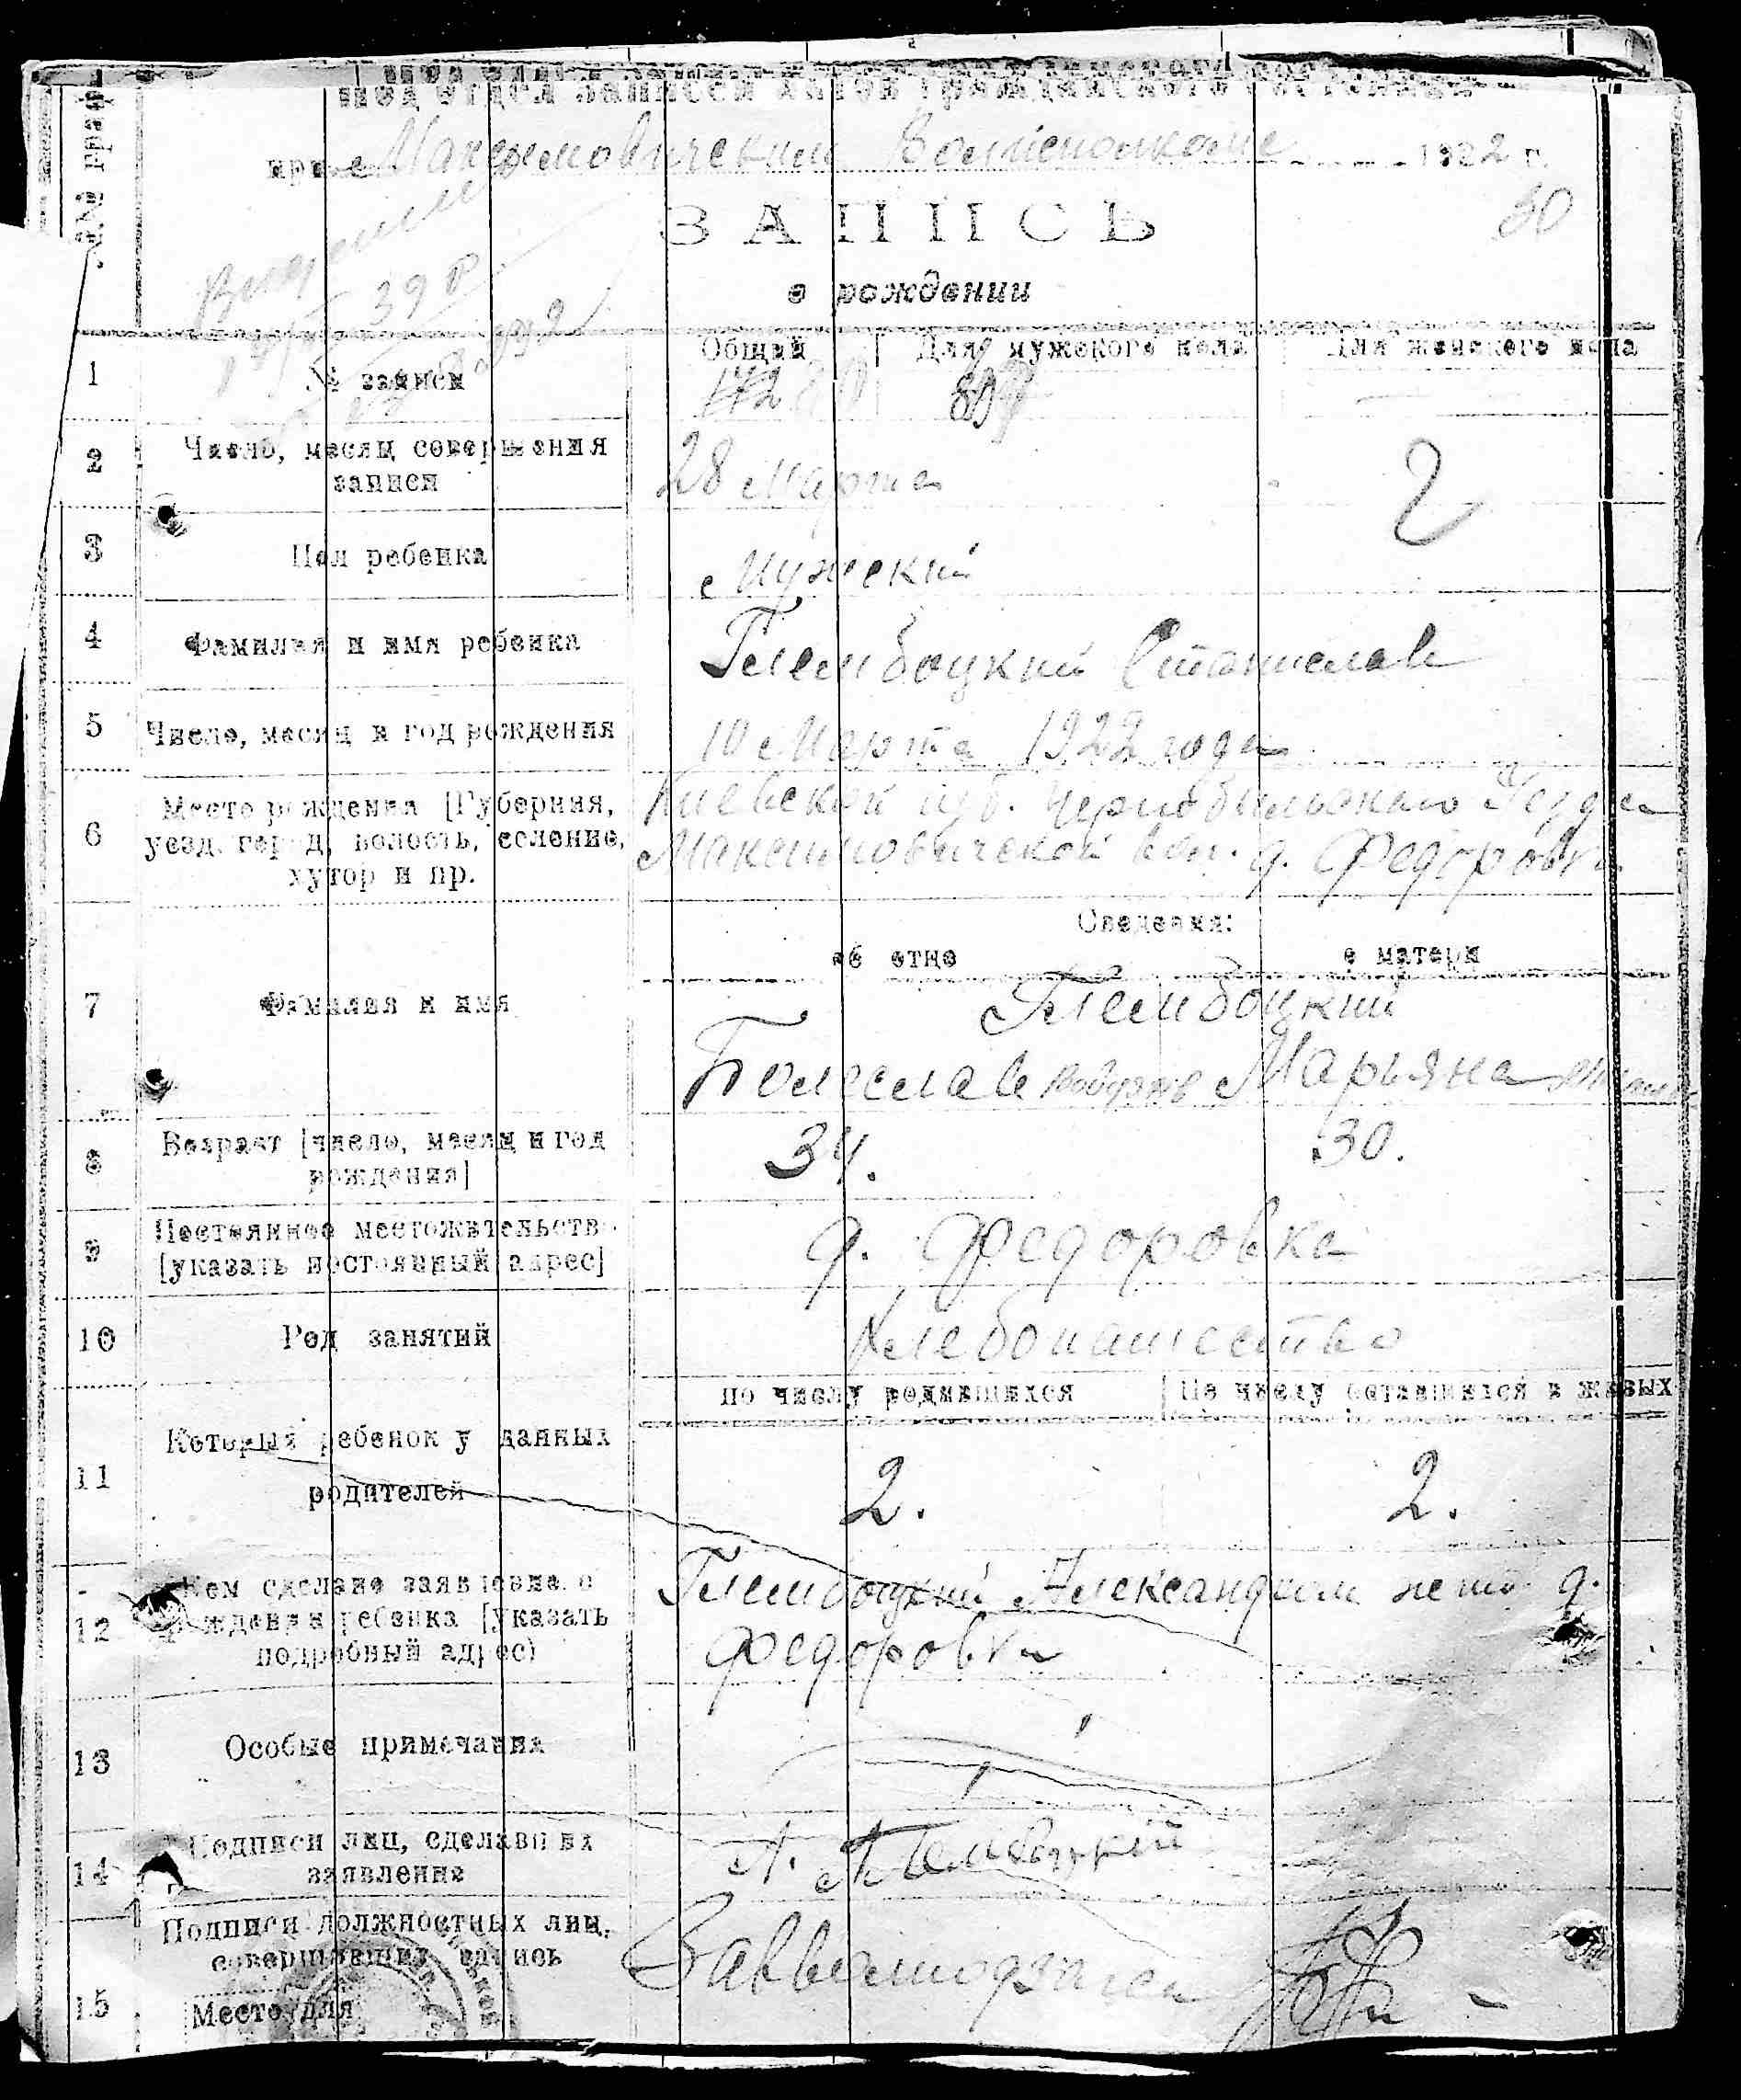 №№ граф
Подотдел записей актов гражданского состояния
при Максимовичском Волисполкоме 1922 г.
ЗАПИСЬ 50
о рождении
398
Общий Для мужского пола Для женского пола
1 № записи
2 Число, месяц совершения записи 28 Марта
3 Пол ребенка Мужский
4 Фамилия и имя ребенка Глембоцкий Станислав
5 Число, месяц и год рождения 10 Марта 1922 года
Место рождения [Губерния, Киевской губ. Чернобыльского Уезда
6 уезд, город, волость, селение, Максимовичской вол. д. Федоровка
хутор и пр.
Сведения:
об отце о матери
7 Фамилия и имя Глембоцкий
Болеслав Марьяна
8 Возраст [число, месяц и год рождения] 34. 30.
Постоянное местожительство
9 [указать постоянный адрес] д. Федоровка
10 Род занятий Хлебопашество
по числу родившихся По числу оставшихся в живых
Который ребенок у данных
11 родителей 2. 2.
Кем сделано заявление о Глембоцкий Александром д.
12 рождении ребенка [указать Федоровки
подробный адрес)
13 Особые примечания
Подписи лиц, сделавших А. Глембоцкий
14 заявление
Подписи должностных лиц,
совершивших запись
15 Место для